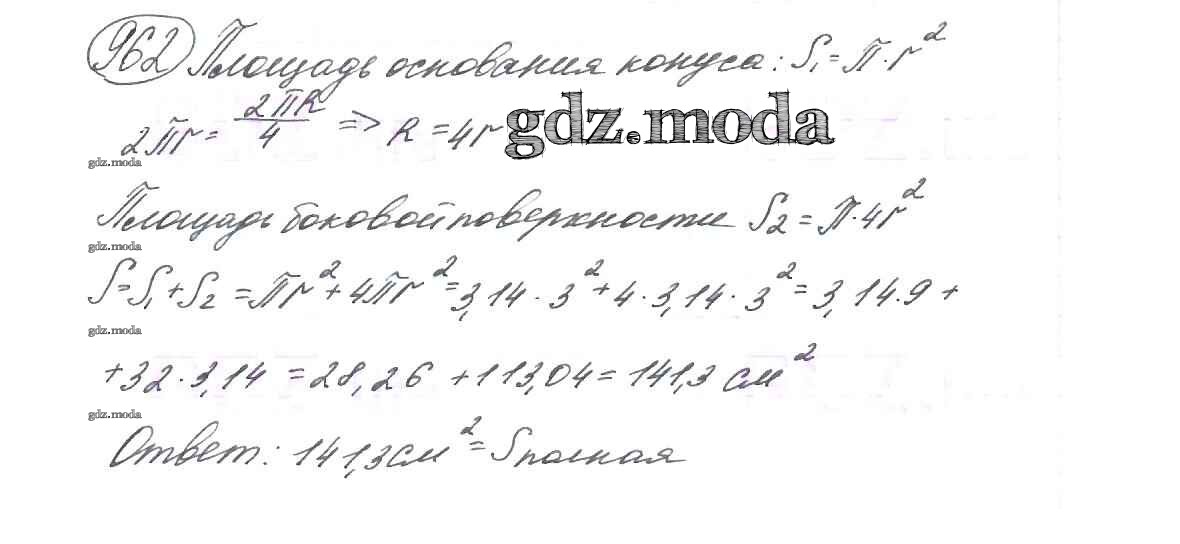 962 Площадь основания конуса: S₁ = π·r²
2πr = 2πR/4 => R = 4r gdz.moda
gdz.moda
Площадь боковой поверхности S₂ = π·4r²
gdz.moda
S = S₁ + S₂ = πr² + 4πr² = 3,14·3² + 4·3,14·3² = 3,14·9 +
gdz.moda
+32·3,14 = 28,26 + 113,04 = 141,3 см²
gdz.moda
Ответ: 141,3 см² = Sполная